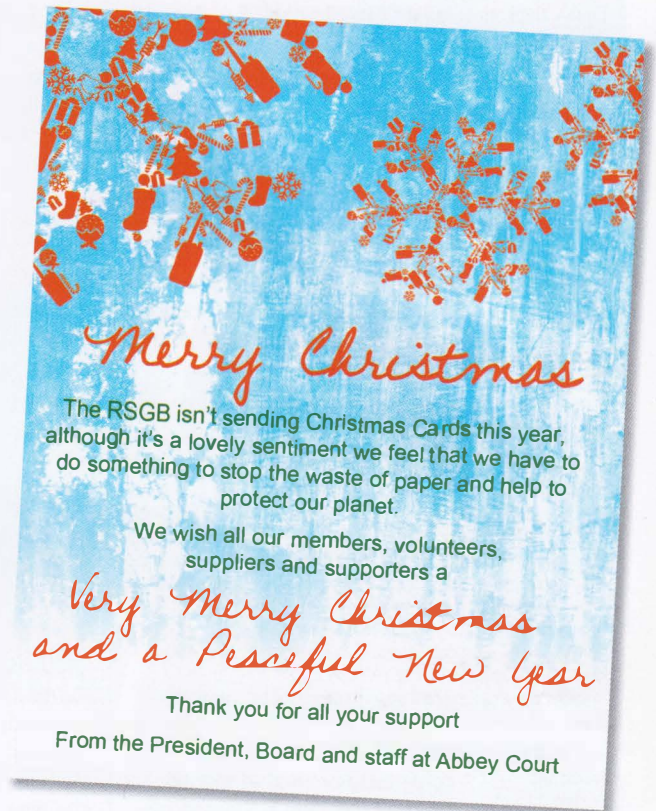 Merry Christmas
The RSGB isn't sending Christmas Cards this year,
although it's a lovely sentiment we feel that we have to
do something to stop the waste of paper and help to
protect our planet.
We wish all our members, volunteers,
suppliers and supporters a
Very Merry Christmas
and a Peaceful New Year
Thank you for all your support
From the President, Board and staff at Abbey Court